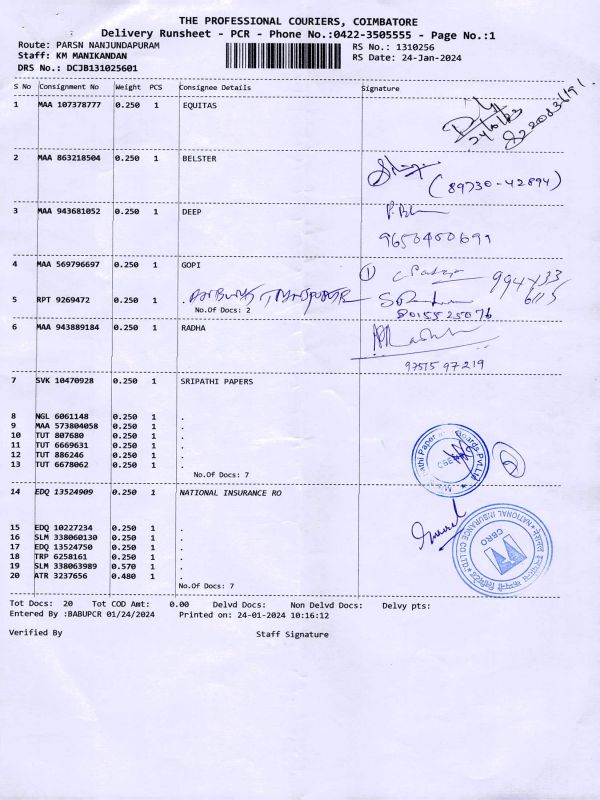 THE PROFESSIONAL COURIERS, COIMBATORE
Delivery Runsheet - PCR - Phone No.:0422-3505555 - Page No.:1
Route: PARSN NANJUNDAPURAM
Staff: KM MANIKANDAN
DRS No.: DCJB131025601
RS No.: 1310256
RS Date: 24-Jan-2024
S No Consignment No Weight PCS Consignee Details Signature
1 MAA 107378777 0.250 1 EQUITAS
2 MAA 863218504 0.250 1 BELSTER
(89730-42894)
3 MAA 943681052 0.250 1 DEEP
4 MAA 569796697 0.250 1 GOPI
1
5 RPT 9269472 0.250 1
No.Of Docs: 2
8015525076
6 MAA 943889184 0.250 1 RADHA
97515 97219
7 SVK 10470928 0.250 1 SRIPATHI PAPERS
8 NGL 6061148 0.250 1 .
9 MAA 573804058 0.250 1 .
10 TUT 807680 0.250 1 .
11 TUT 6669631 0.250 1 .
12 TUT 886246 0.250 1 .
13 TUT 6678062 0.250 1 .
No.Of Docs: 7
2
14 EDQ 13524909 0.250 1 NATIONAL INSURANCE RO
15 EDQ 10227234 0.250 1 .
16 SLM 338060130 0.250 1 .
17 EDQ 13524750 0.250 1 .
18 TRP 6258161 0.250 1 .
19 SLM 338063989 0.570 1 .
20 ATR 3237656 0.480 1 .
No.Of Docs: 7
NATIONAL INSURANCE CO LTD
CBRO
Tot Docs: 20 Tot COD Amt: 0.00 Delvd Docs: Non Delvd Docs: Delvy pts:
Entered By :BABUPCR 01/24/2024 Printed on: 24-01-2024 10:16:12
Verified By Staff Signature